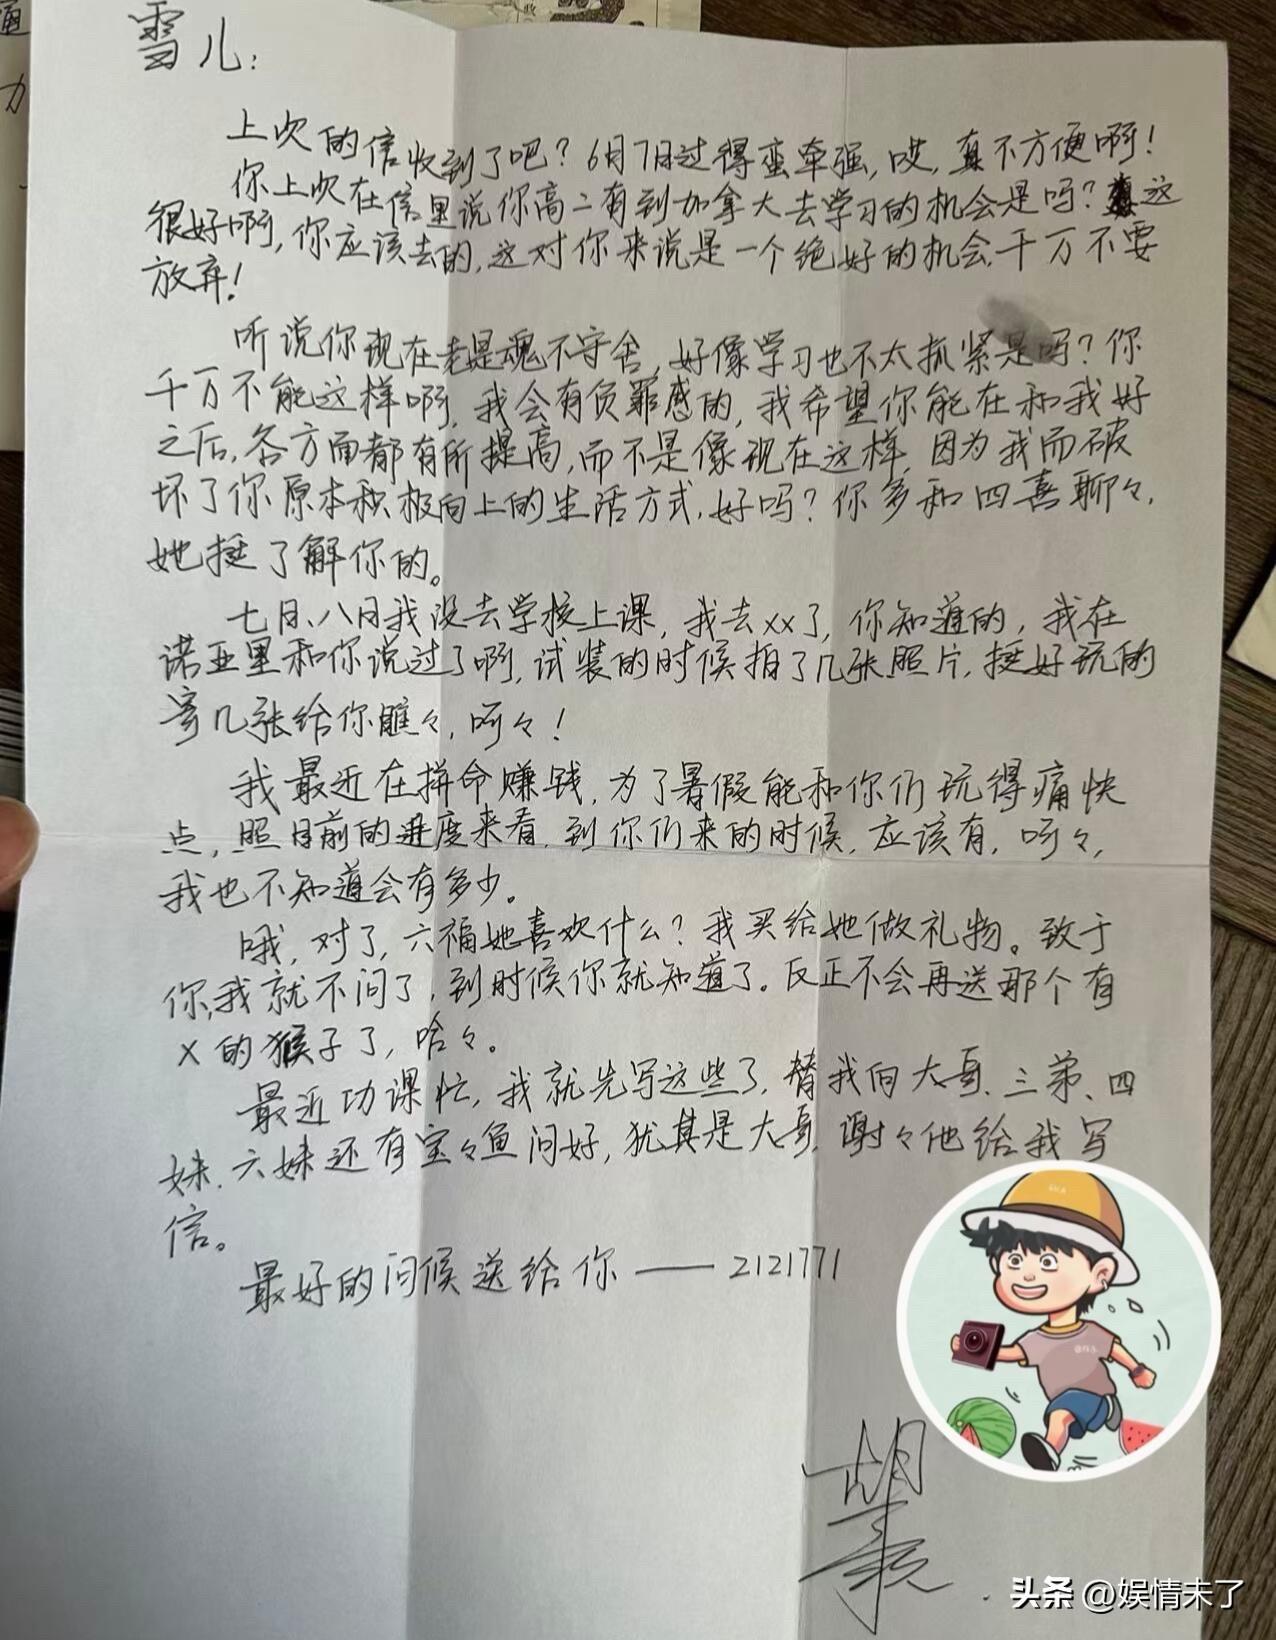 雪儿：
上次的信收到了吧？6月7日过得蛮牵强，哎，真不方便啊！
你上次在信里说你高二有到加拿大去学习的机会是吗？这
很好啊，你应该去的，这对你来说是一个绝好的机会，千万不要
放弃！
听说你现在老是魂不守舍，好像学习也不太抓紧是吗？你
千万不能这样啊，我会有负罪感的，我希望你能在和我好
之后，各方面都有所提高，而不是像现在这样，因为我而破
坏了你原本积极向上的生活方式，好吗？你多和四喜聊々，
她挺了解你的。
七月、八月我没去学校上课，我去xx了，你知道的，我在
诺亚里和你说过了啊，试装的时候拍了几张照片，挺好玩的
寄几张给你瞧々，呵々！
我最近在拼命赚钱，为了暑假能和你们玩得痛快
点，照目前的进度来看，到你们来的时候，应该有，呵々，
我也不知道会有多少。
哦，对了，六福她喜欢什么？我买给她做礼物。致于
你，我就不问了，到时候你就知道了。反正不会再送那个有
X的猴子了，哈々。
最近功课忙，我就先写这些了，替我向大哥、三弟、四
妹、六妹还有宝々鱼问好，犹其是大哥，谢々他给我写
信。
最好的问候送给你——2121771
胡
头条 @娱情未了